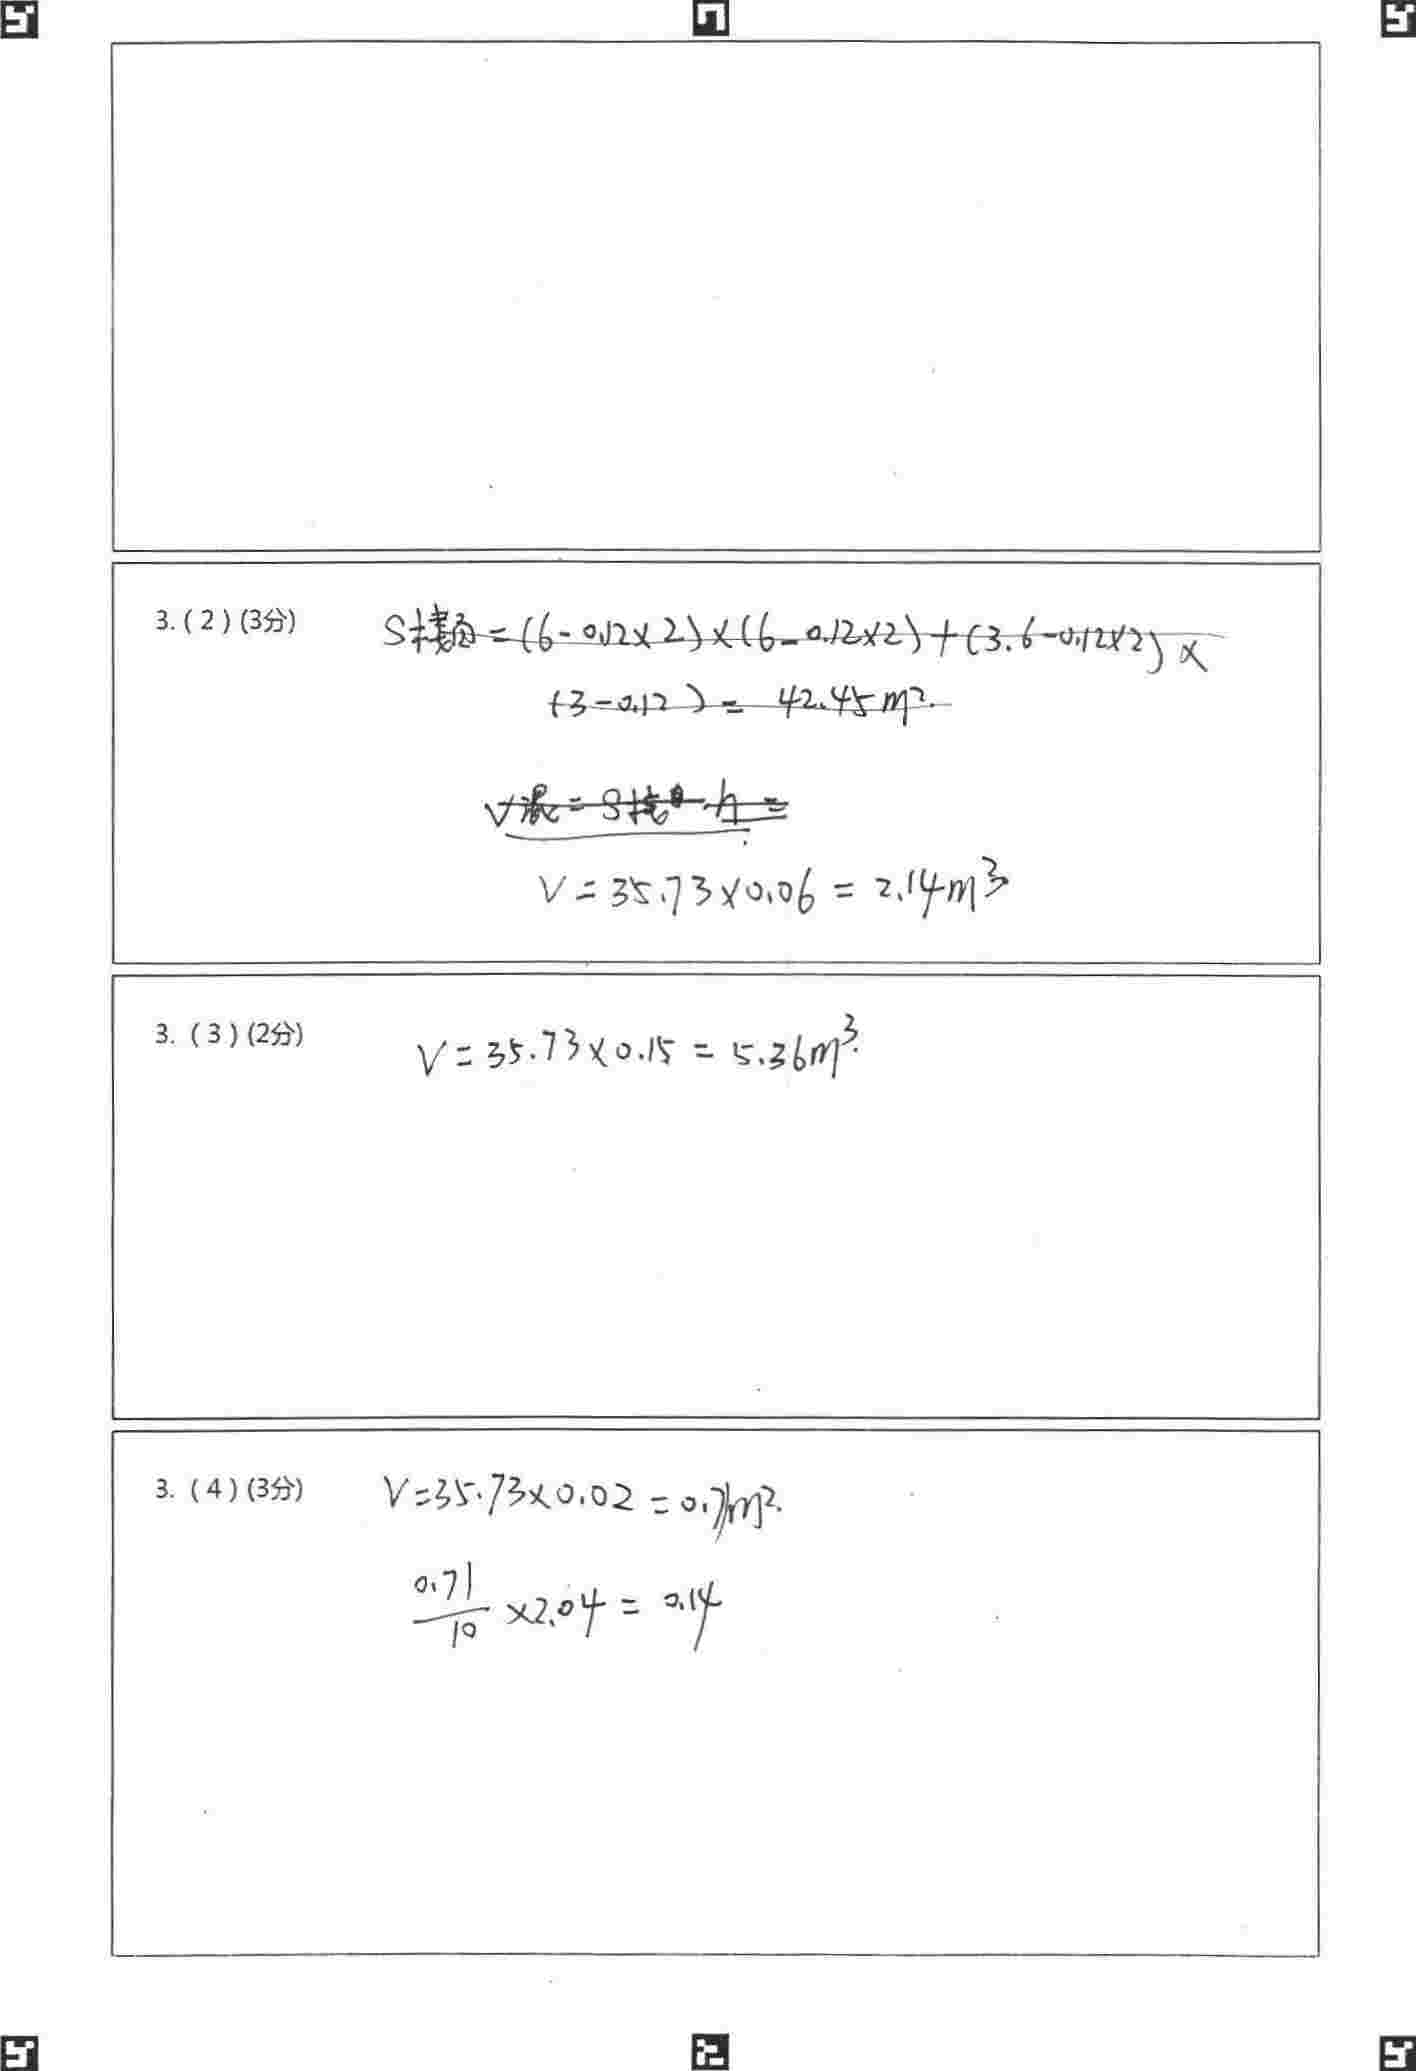 3. ( 2 ) (3分)
S楼面=(6-0.12×2)×(6-0.12×2)+(3.6-0.12×2)×
(3-0.12)= 42.45m².
V=35.73×0.06=2.14m³
3. ( 3 ) (2分)
V=35.73×0.15=5.36m³.
3. ( 4 ) (3分)
V=35.73×0.02=0.71m².
0.71
10
×2.04=0.14